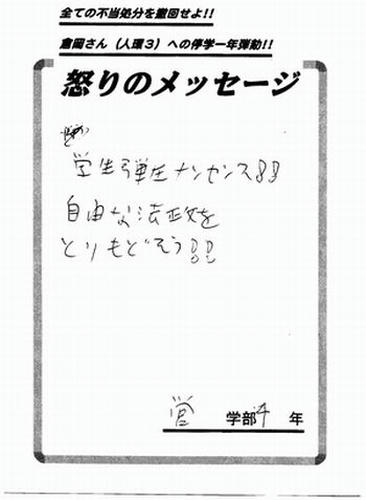 全ての不当処分を撤回せよ!!
倉岡さん（人環３）への停学一年弾劾!!
怒りのメッセージ
学生弾圧ナンセンス!!
自由な法政を
とりもどそう!!
営 学部 4 年